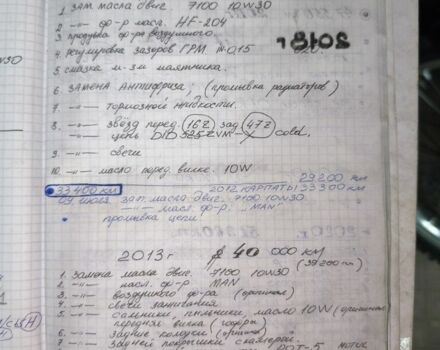 1. ЗАМ. МАСЛА ДВИГ. 7100 10W30
2. —"— ф-р масл. HF-204
3 продувка ф-ра воздушного.
4. Регулировка зазоров ГРМ. №0,15
20181
5 смазка м-зм маятника.
6. ЗАМЕНА АНТИФРИЗА, (промывка радиаторов)
7. —"— тормозной жидкости.
8. —"— звёзд перед. 16Z зад 47Z
—"— цепь DID 525ZVM-X Gold.
9. —"— свечи
10. —"— масло перед. вилке. 10W
29 200 км
33 400 КМ 2012 КАРПАТЫ 33 300 КМ
09 июля зам. масла двиг. 7100 10W30.
—"— масл. ф-р. "MAN"
промывка цепи
2013г 40 000 КМ
(39 200 км)
1. Замена масла двиг. 7100 10W30
2. —"— масл. ф-р MAN
3. —"— воздушного ф-ра (оригинал)
4. —"— свечи зажигания
5. —"— сальники, пыльники, масло 10W (оригинал)
передняя вилка
6. —"— задние колодки
7. —"— задней покрышки
DOT-5 MOTUL